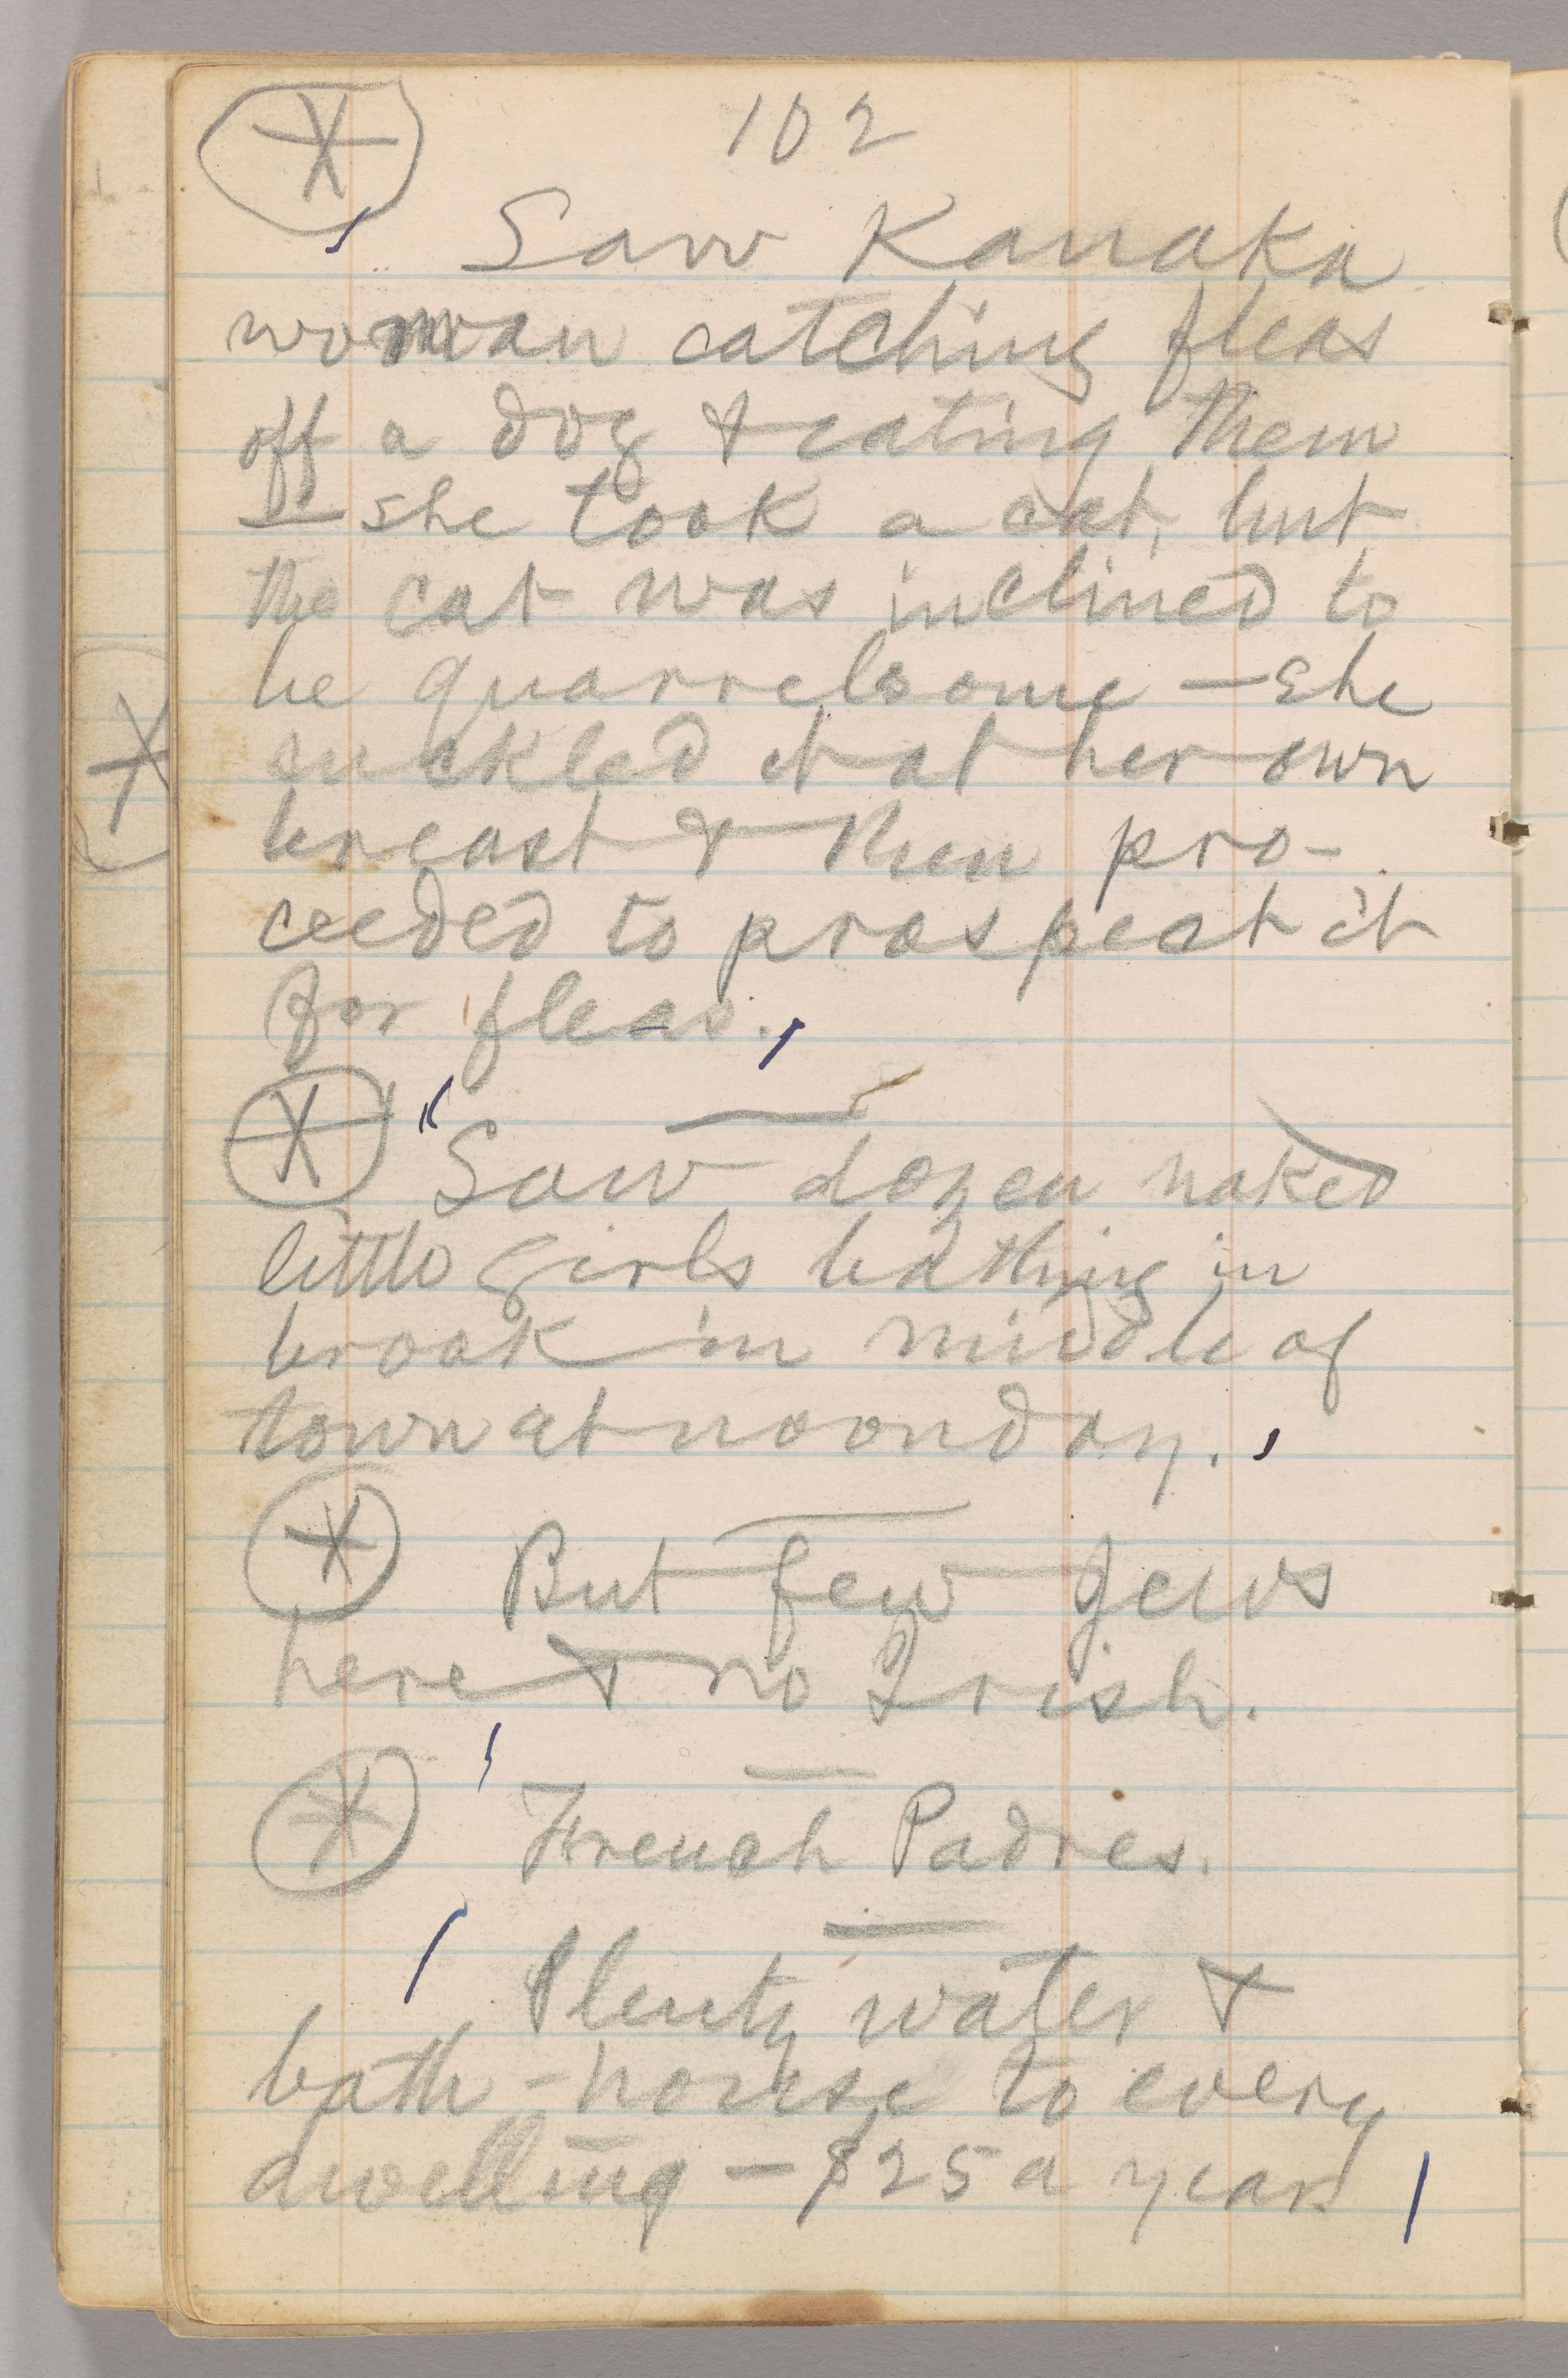 102
Saw Kanaka
woman catching fleas
off a dog & eating them
— she took a cat, but
the cat was inclined to
be quarrelsome — she
suckled it at her own
breast & then pro-
ceeded to prospect it
for fleas.
Saw dozen naked
little girls bathing in
brook in middle of
town at noonday.
But few Jews
here & no Irish.
French Padres.
Plenty water &
bath-house to every
dwelling — $25 a year